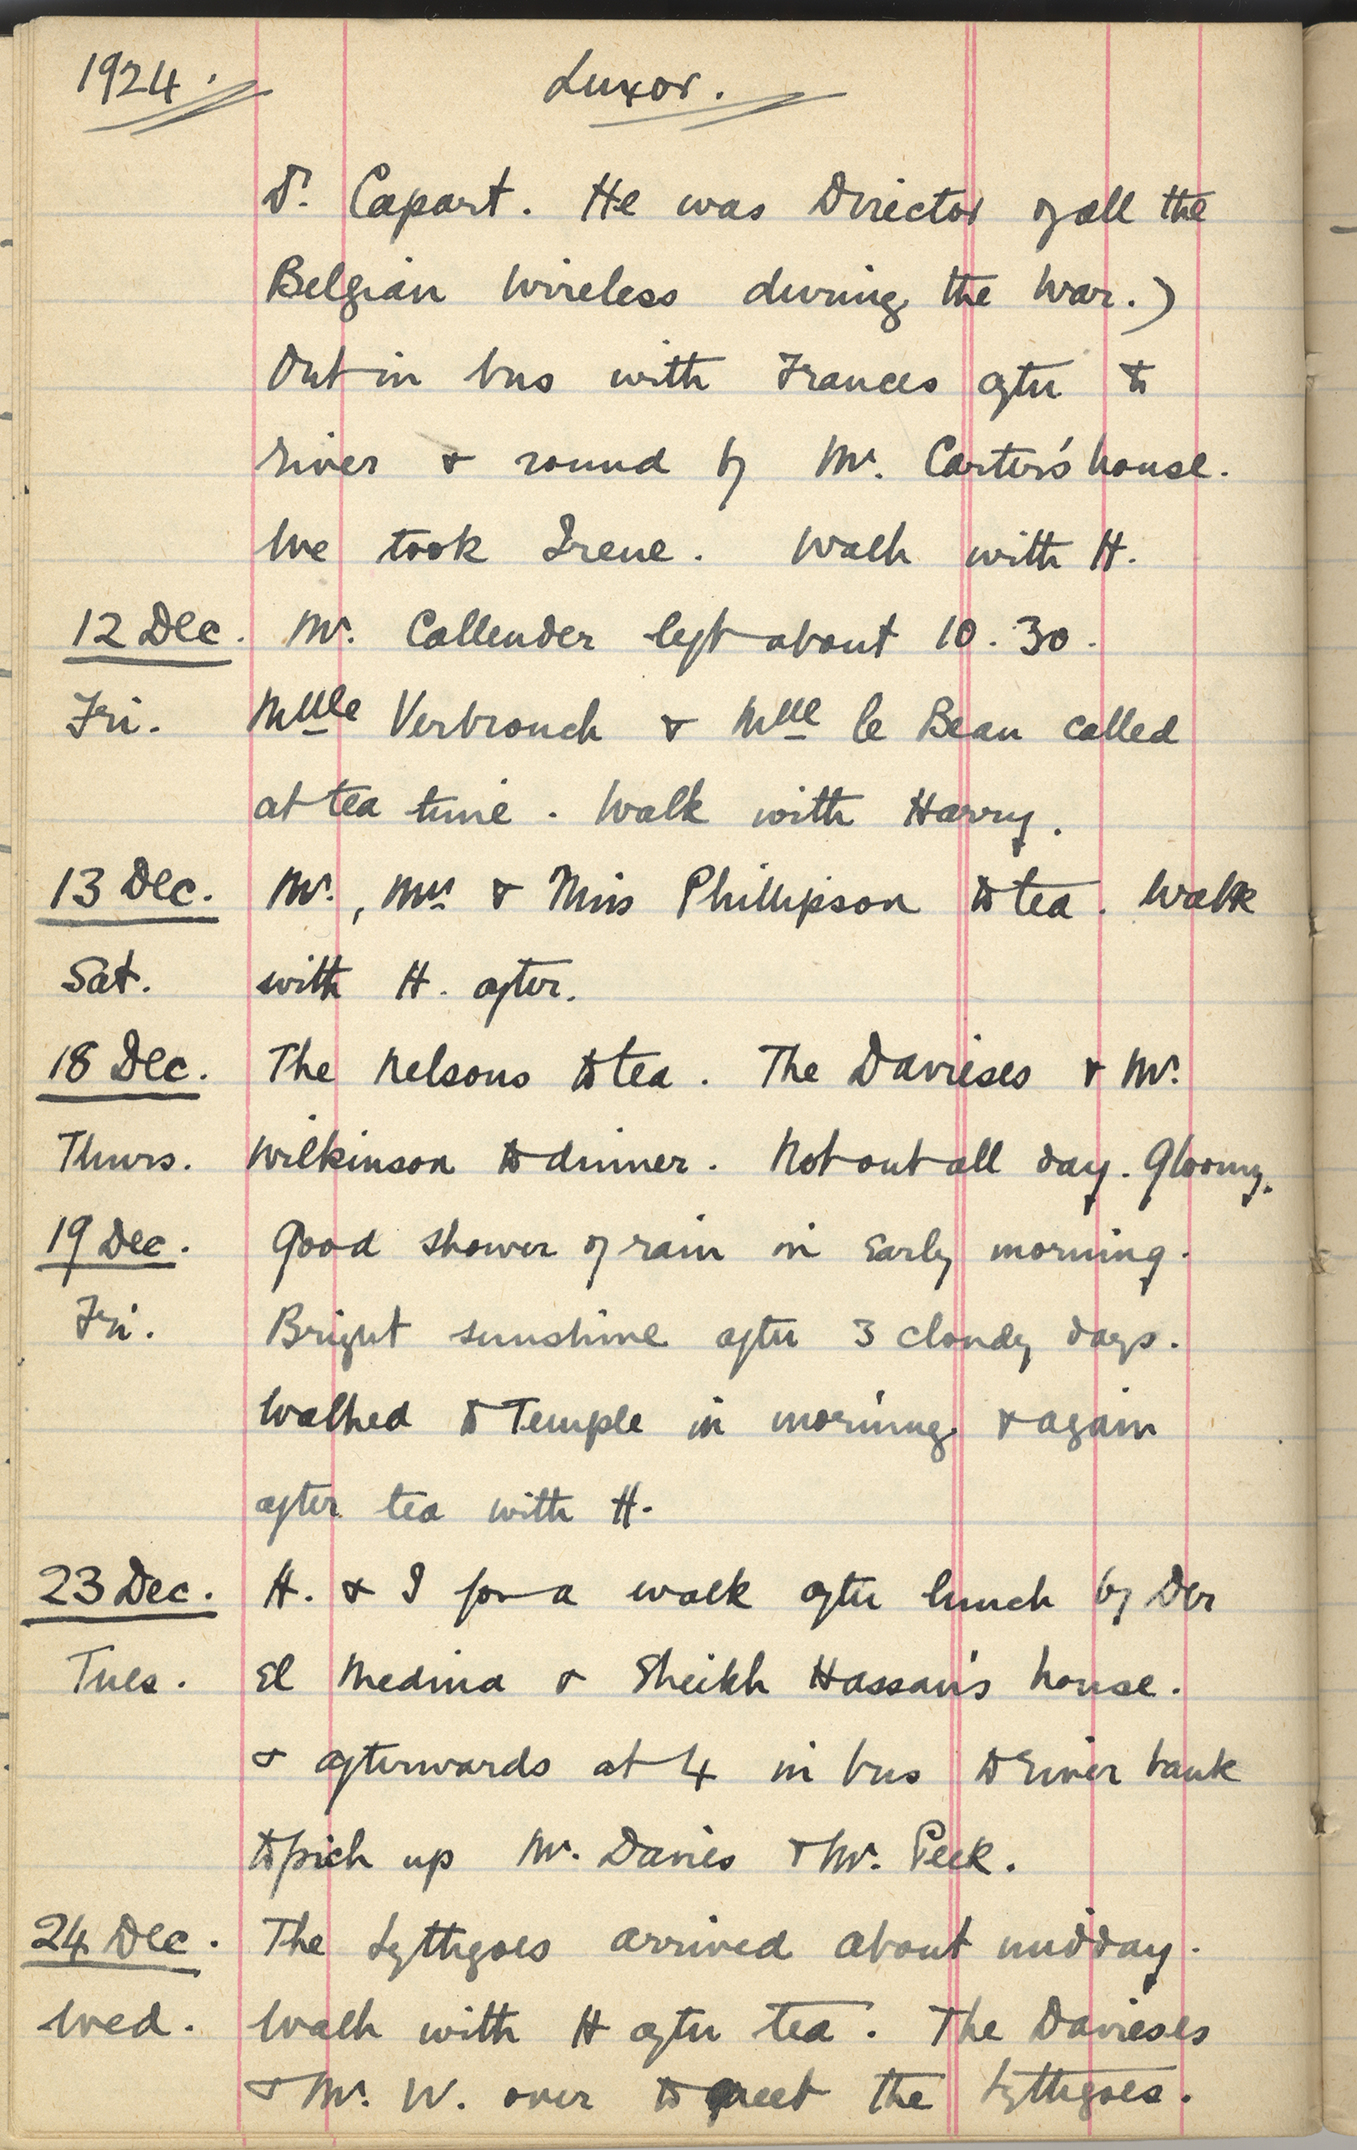 1924. Luxor.
Dr. Capart. He was Director of all the
Belgian Wireless during the War.)
Out in bus with Frances after to
river & round by Mr. Carter's house.
We took Irene. Walk with H.
12 Dec. Mr. Callender left about 10.30.
Fri. Mlle Verbrouck & Mlle le Beau called
at tea time. Walk with Harry.
13 Dec. Mr., Mrs & Miss Phillipson to tea. Walk
Sat. with H. after.
18 Dec. The Nelsons to tea. The Davieses & Mr.
Thurs. Wilkinson to dinner. Not out all day. Gloomy.
19 Dec. Good shower of rain in early morning.
Fri. Bright sunshine after 3 cloudy days.
Walked to Temple in morning & again
after tea with H.
23 Dec. H. & I for a walk after lunch by Der
Tues. El Medina & Sheikh Hassan's house.
& afterwards at 4 in bus to river bank
to pick up Mr. Davies & Mr. Peek.
24 Dec. The Lythgoes arrived about midday.
Wed. Walk with H after tea. The Davieses
& Mr. W. over to greet the Lythgoes.